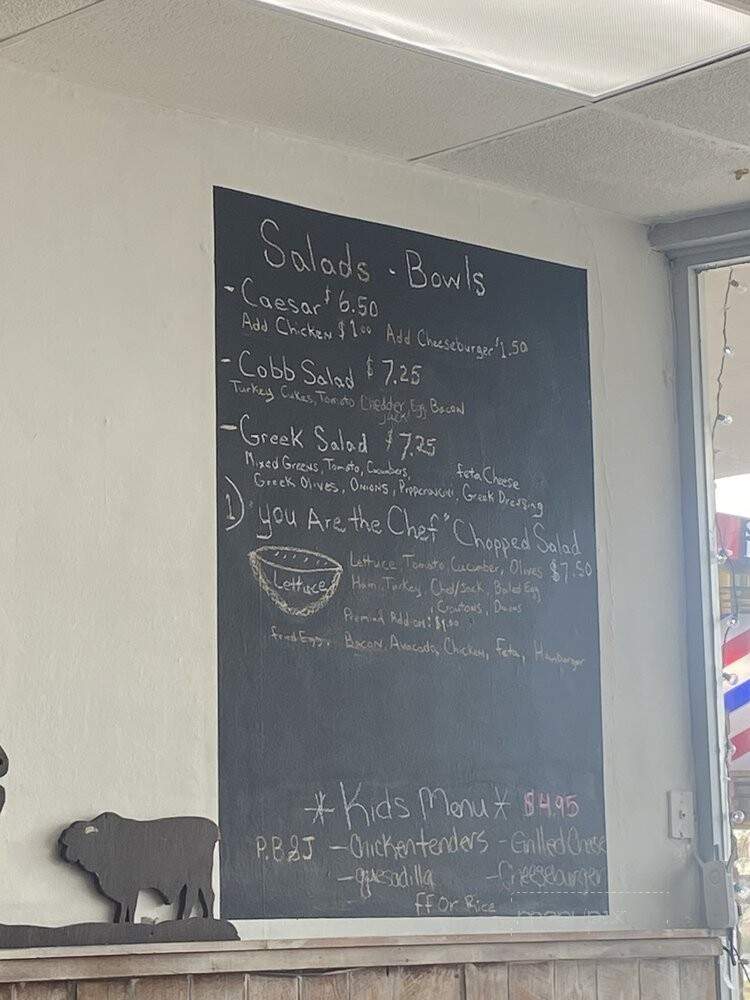 Salads - Bowls
- Caesar $6.50
Add Chicken $1.00 Add Cheeseburger $1.50
- Cobb Salad $7.25
Turkey, Cukes, Tomato Chedder, Egg, Bacon
Jack
- Greek Salad $7.25
Mixed Greens, Tomato, Cucumbers, feta Cheese
Greek Olives, Onions, Greek Dressing
1) "you Are the Chef" Chopped Salad
Lettuce, Tomato, Cucumber, Olives $7.50
Lettuce
Ham, Turkey, Ched/Jack, Boiled Egg
Croutons,
Premium Add-on: $1.00
fried Egg, Bacon, Avacado, Chicken, Feta, Hamburger
* Kids Menu * $4.95
P.B&J - Chicken tenders - Grilled Cheese
- quesadilla - Cheeseburger
ff Or Rice
menupix